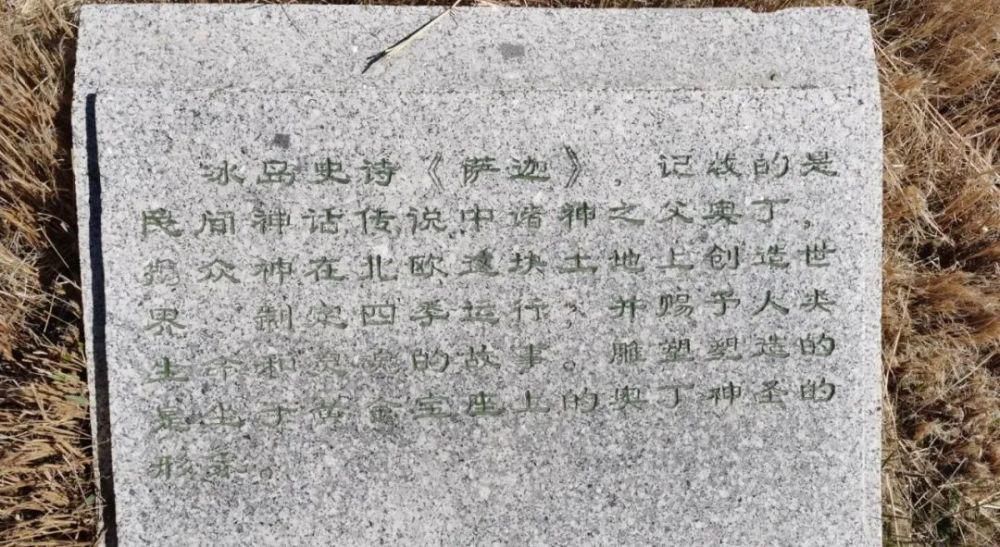 冰岛史诗《萨迦》，记敘的是
民间神话传说中诸神之父奥丁，
携众神在北欧这块土地上创造世
界，制定四季运行，并赐予人类
生命和灵魂的故事。雕塑塑造的
是坐于黄金宝座上的奥丁神圣的
形象。